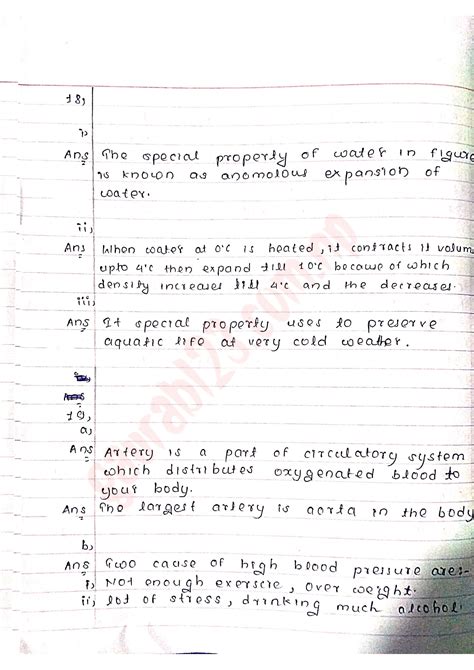 18,
i,
Ans The special property of water in figure
is known as anomolous expansion of
water.
ii,
Ans When water at 0°c is heated, it contracts it volum
upto 4°c then expand till 10°c because of which
density increases till 4°c and the decreases.
iii,
Ans It special property uses to preserve
aquatic life at very cold weather.
19,
a,
Ans Artery is a part of circulatory system
which distributes oxygenated blood to
your body.
Ans The largest artery is aorta in the body
b,
Ans Two cause of high blood pressure are:-
i, Not enough exerscie, over weight.
ii, lot of stress, drinking much alcohol.